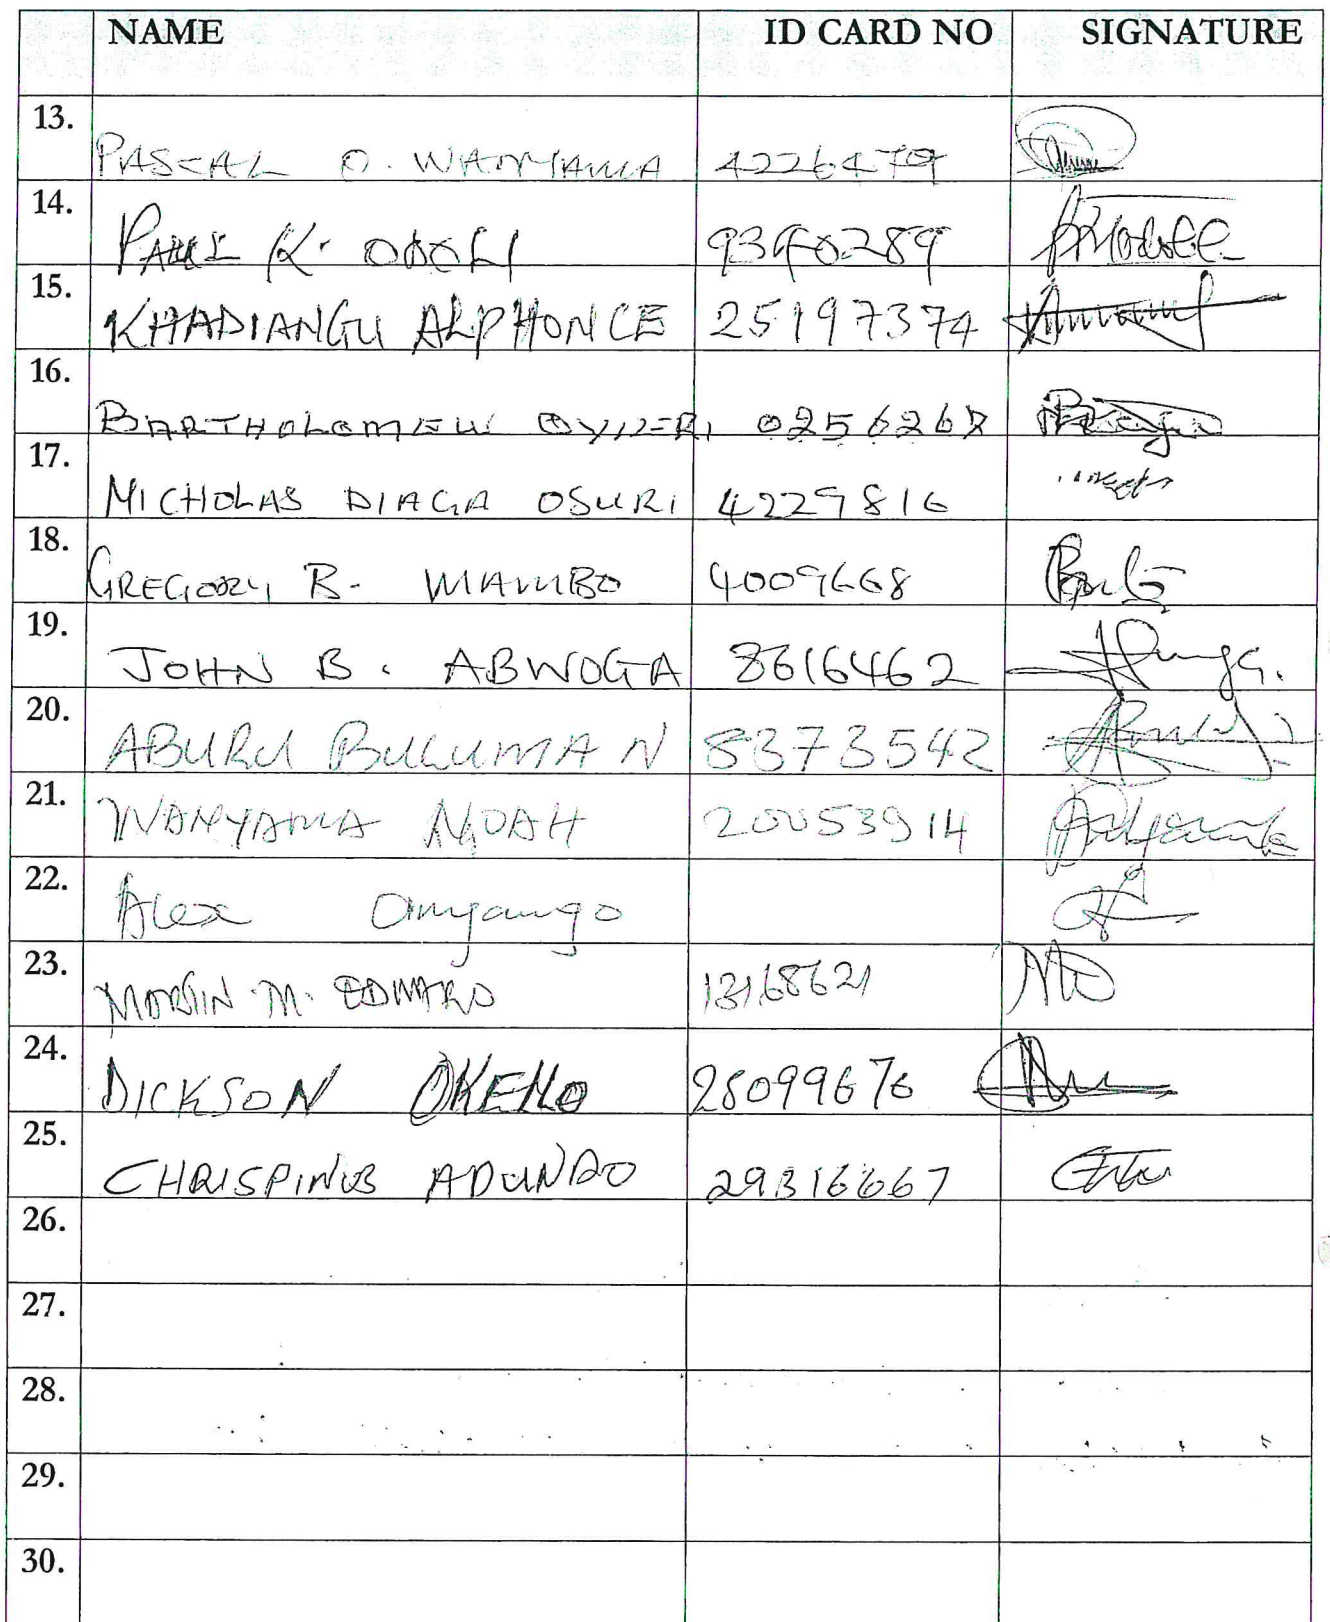 NAME ID CARD NO SIGNATURE
13. PASCAL O. WANYAMA 4226479
14. PAUL K. 9340289
15. KHADIANGU ALPHONCE 25197374
16. BARTHOLOMEW 0256267
17. NICHOLAS DIAGA OSURI 4229816
18. GREGORY B. WAMBO 4009668
19. JOHN B. ABWOGA 8616462
20. ABURU BULUMA N 8373542
21. WANYAMA NOAH 20053914
22. Alex Onyango
23. MARTIN M. EDWARD 13168621
24. DICKSON OKELLO 28099676
25. CHRISPINUS ADUNDO 29316667
26.
27.
28.
29.
30.